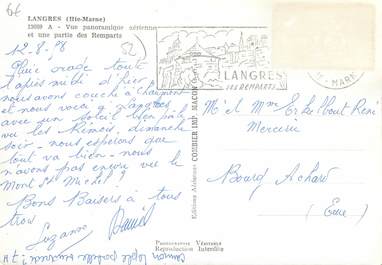 6€
LANGRES (Hte-Marne)
A - Vue panoramique aérienne
et une partie des Remparts
12-8-78
Pluie orage toute
l'après midi d'hier
nous avons couché à Chaumont
et nous voici à Langres
avec un soleil bien pâle
vu les Rémois, dimanche
soir - nous espérons que
tout va bien - nous
n'avons pas encore vu le
Mont St Michel ?
Bons Baisers à tous
trois
Suzanne
Daniel
LANGRES
SES REMPARTS
MARNE
Editions Aériennes COMBIER IMP. MACON
M'et Mme René
Mercerie
Bourg Achard
(Eure)
PHOTOGRAPHIE VÉRITABLE
Reproduction Interdite